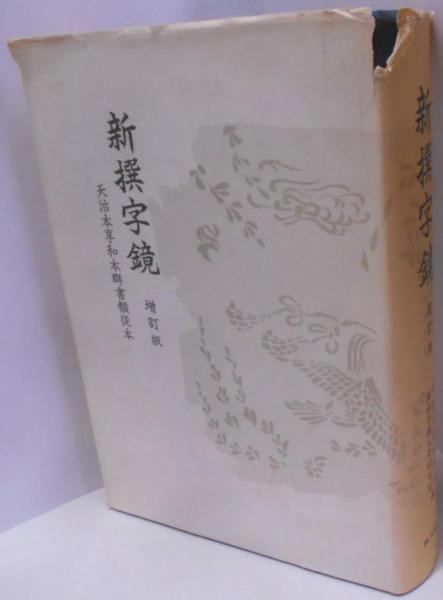 新撰字鏡
増訂版
天治本享和本群書類從本
新撰字鏡